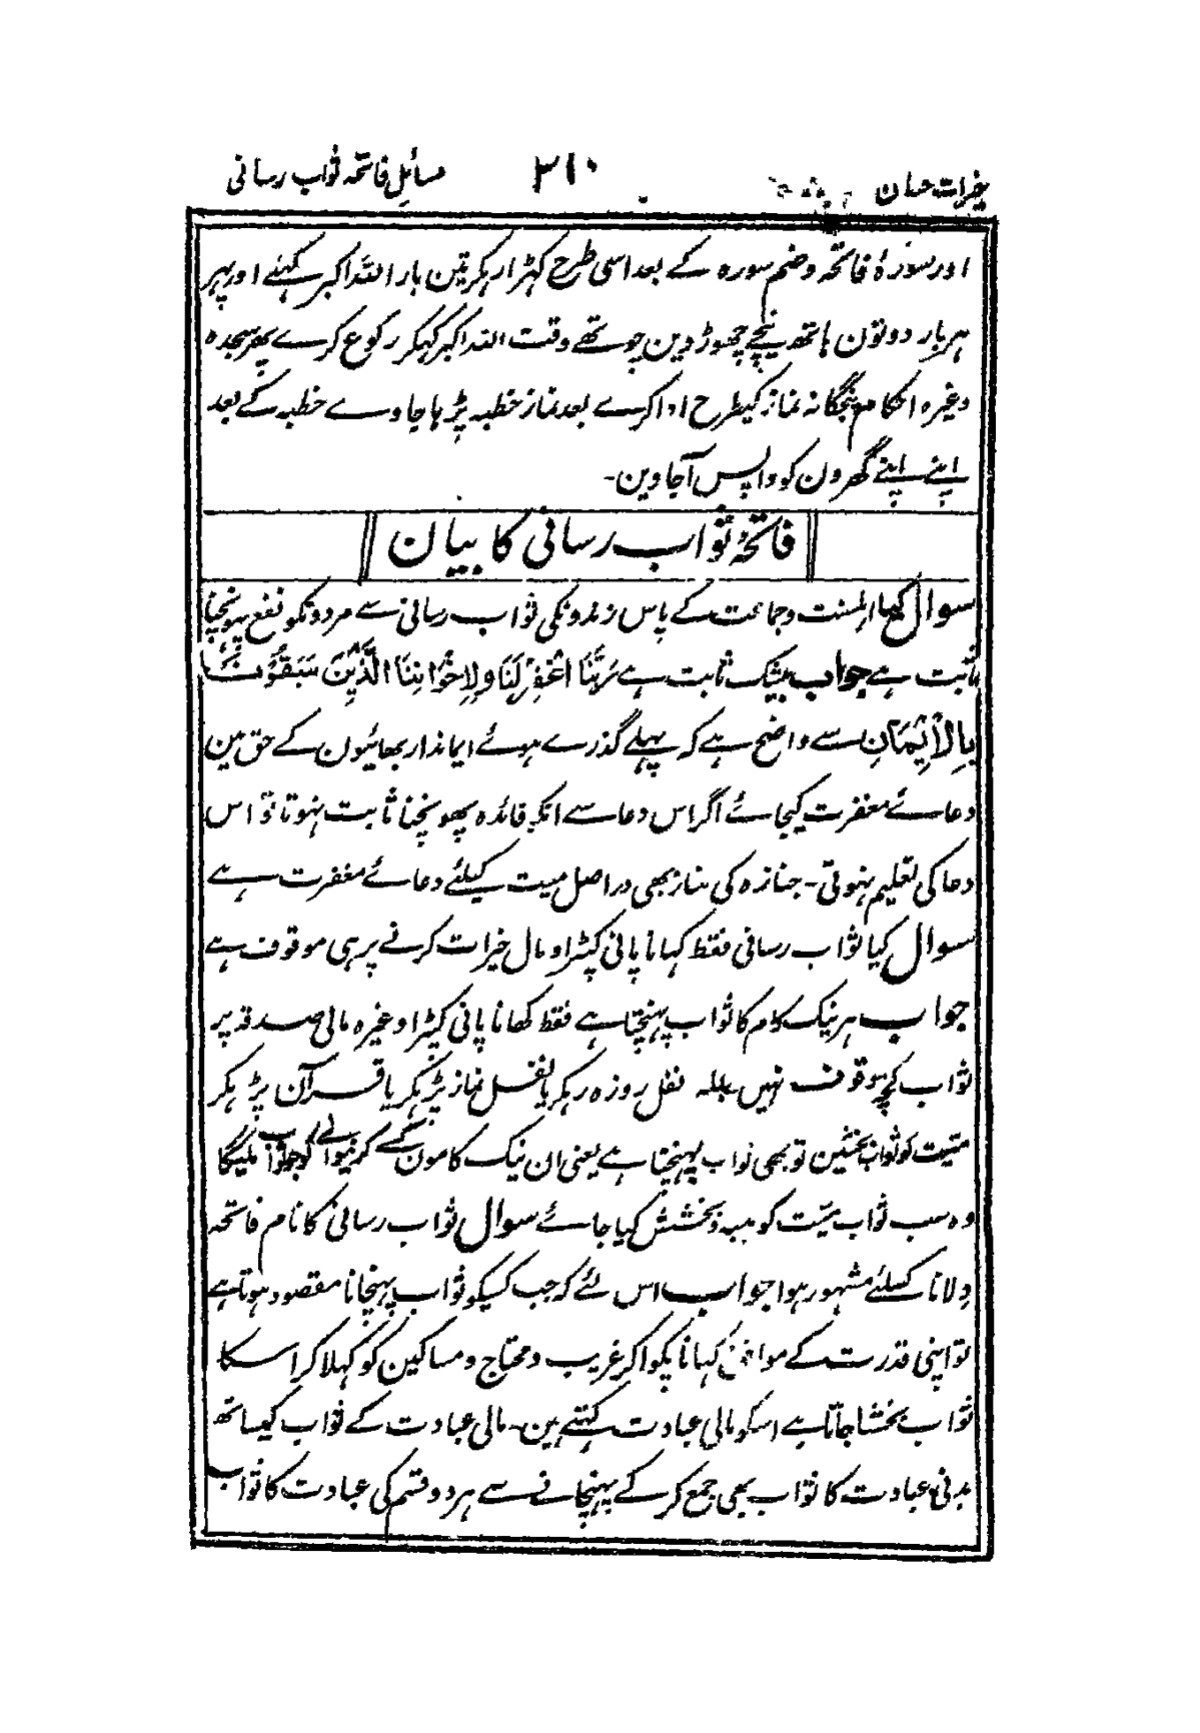 خیرات حسان ۲۱۰ مسائل فاتحہ ثواب رسانی
اور سورۂ فاتحہ وضم سورہ کے بعد اسی طرح کہڑا رہکر تین بار اللہ اکبر کہئے اور پہر
ہر بار دونون ہاتھ نیچے چھوڑ دین چوتھے وقت اللہ اکبر کہکر رکوع کرے پھر سجدہ
وغیرہ احکام پنجگانہ نماز کیطرح ادا کرے بعد نماز خطبہ پڑہا جاوے خطبہ کے بعد
اپنے اپنے گھرون کو واپس آجاوین۔
فاتحۂ ثواب رسانی کا بیان
سوال کیا اہلسنت وجماعت کے پاس زندونکی ثواب رسانی سے مردونکو نفع پہونچنا
ثابت ہے جواب بیشک ثابت ہے رَبَّنَا اغْفِرْ لَنَا وَلِاِخْوَانِنَا الَّذِیْنَ سَبَقُوْنَا
بِالْاِیْمَانِ سے واضح ہے کہ پہلے گذرے ہوئے ایماندار بھائیون کے حق مین
دعائے مغفرت کیجائے اگر اس دعا سے انکو فائدہ پھونچنا ثابت نہوتا تو اس
دعا کی تعلیم نہوتی۔ جنازہ کی نماز بھی دراصل میت کیلئے دعائے مغفرت ہے
سوال کیا ثواب رسانی فقط کہانا پانی کپڑا و مال خیرات کرنے پر ہی موقوف ہے
جواب ہر نیک کام کا ثواب پہنچتا ہے فقط کھانا پانی کپڑا وغیرہ مالی صدقہ پر
ثواب کچھ موقوف نہیں بلکہ نفل روزہ رہکر یا نفل نماز پڑہکر یا قرآن پڑہکر
میّت کو ثواب بخشین تو بھی ثواب پہنچتا ہے یعنی ان نیک کامون کے کرنیوالے کو جو ثواب ملیگا
وہ سب ثواب میّت کو ہبہ وبخشش کیا جائے سوال ثواب رسانی کا نام فاتحہ
دلانا کسلئے مشہور ہوا جواب اس لئے کہ جب کسیکو ثواب پہنچانا مقصود ہوتا ہے
تو اپنی قدرت کے موافق کہانا پکوا کر غریب ومحتاج ومساکین کو کہلا کر اسکا
ثواب بخشا جاتا ہے اسکو مالی عبادت کہتے ہین۔ مالی عبادت کے ثواب کیساتھ
بدنی عبادت کا ثواب بھی جمع کر کے پہنچانے سے ہر دو قسم کی عبادت کا ثواب